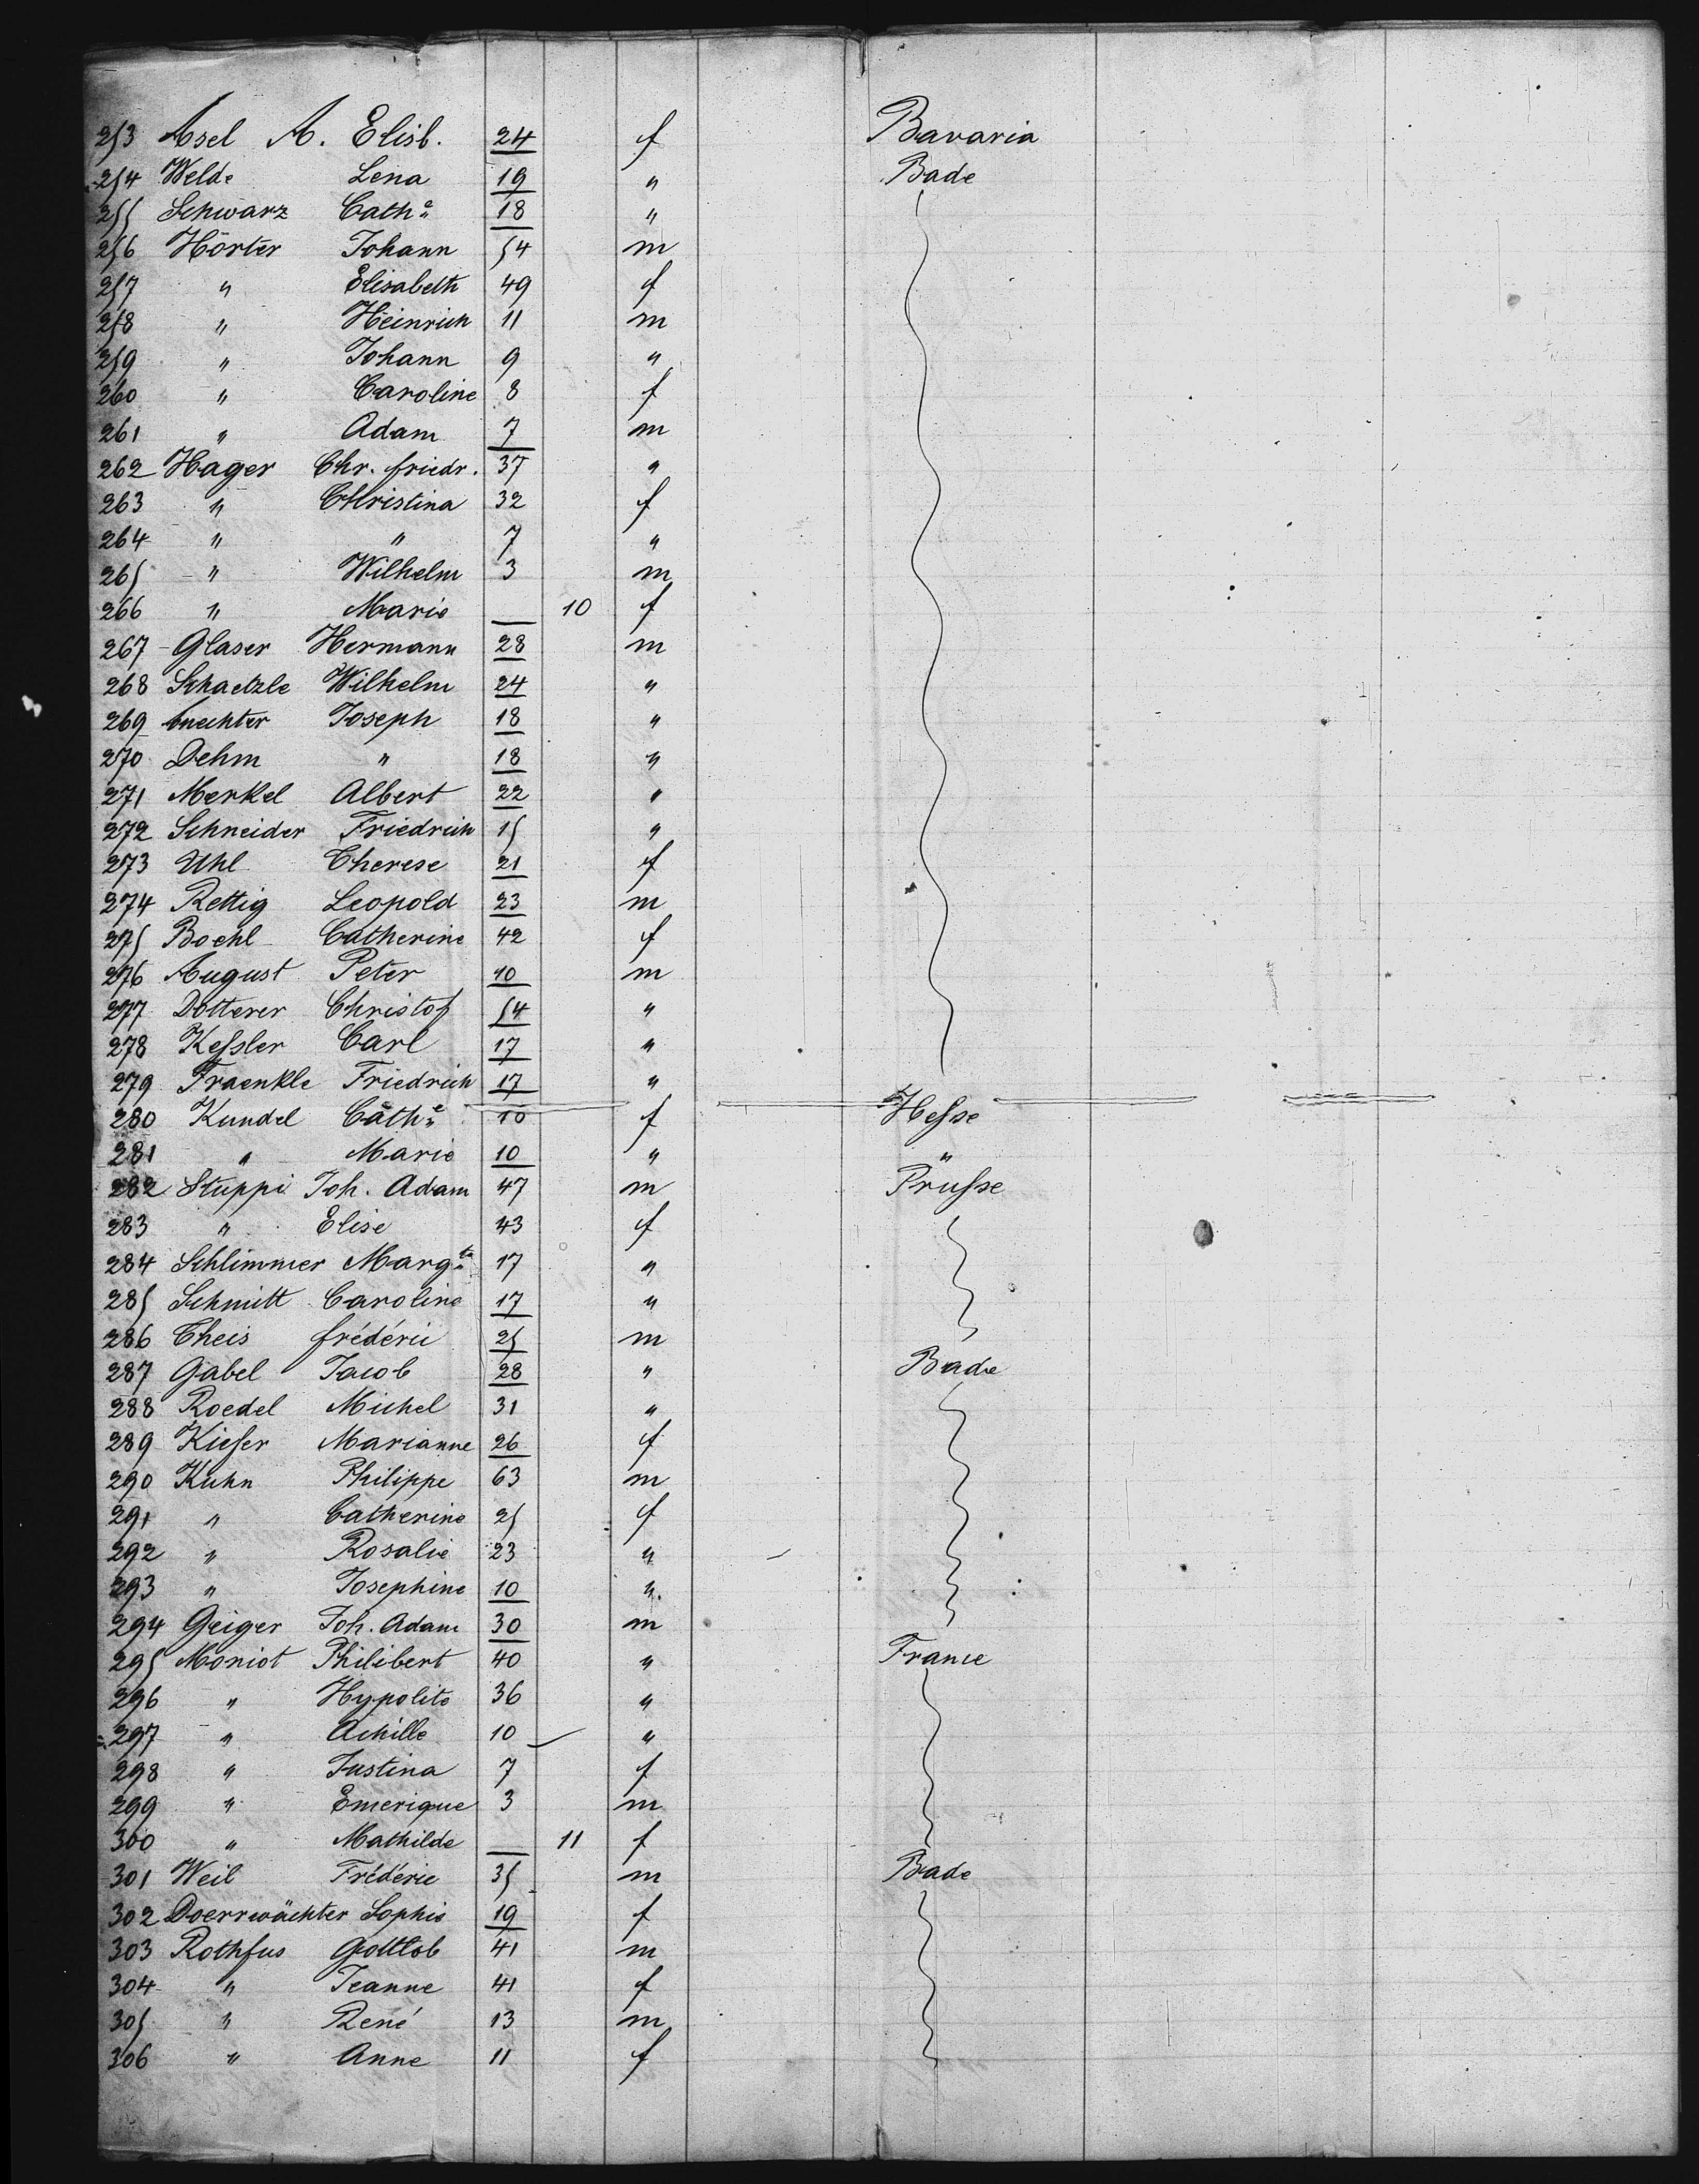 253 Asel A. Elisb. 24 f Bavaria
254 Welde Lena 19 " Bade
255 Schwarz Cathe 18 "
256 Hörter Johann 54 m
257 " Elisabeth 49 f
258 " Heinrich 11 m
259 " Johann 9 "
260 " Caroline 8 f
261 " Adam 7 m
262 Hager Chr. friedr. 37 "
263 " Christina 32 f
264 " " 7 "
265 " Wilhelm 3 m
266 " Marie 10 f
267 Glaser Hermann 28 m
268 Schaetzle Wilhelm 24 "
269 Joseph 18 "
270 Dehm " 18 "
271 Merkel Albert 22 "
272 Schneider Friedrich 15 "
273 Uhl Therese 21 f
274 Rettig Leopold 23 m
275 Boehl Catherine 42 f
276 August Peter 10 m
277 Dotterer Christof 54 "
278 Kessler Carl 17 "
279 Fraenkle Friedrich 17 "
280 Kundel Cathe 10 f Hesse
281 " Marie 10 " "
282 Stuppi Joh. Adam 47 m Prusse
283 " Elise 43 f
284 Schlimmer Margte 17 "
285 Schmitt Caroline 17 "
286 Theis frédéric 25 m
287 Gabel Jacob 28 " Bade
288 Roedel Michel 31 "
289 Kiefer Marianne 26 f
290 Kuhn Philippe 63 m
291 " Catherine 25 f
292 " Rosalie 23 "
293 " Josephine 10 "
294 Geiger Joh. Adam 30 m
295 Moniot Philibert 40 " France
296 " Hypolite 36 "
297 " Achille 10 "
298 " Justina 7 f
299 " Emerique 3 m
300 " Mathilde 11 f
301 Weil Frédéric 35 m Bade
302 Doerrwächter Sophie 19 f
303 Rothfus Gottlob 41 m
304 " Jeanne 41 f
305 " René 13 m
306 " Anne 11 f